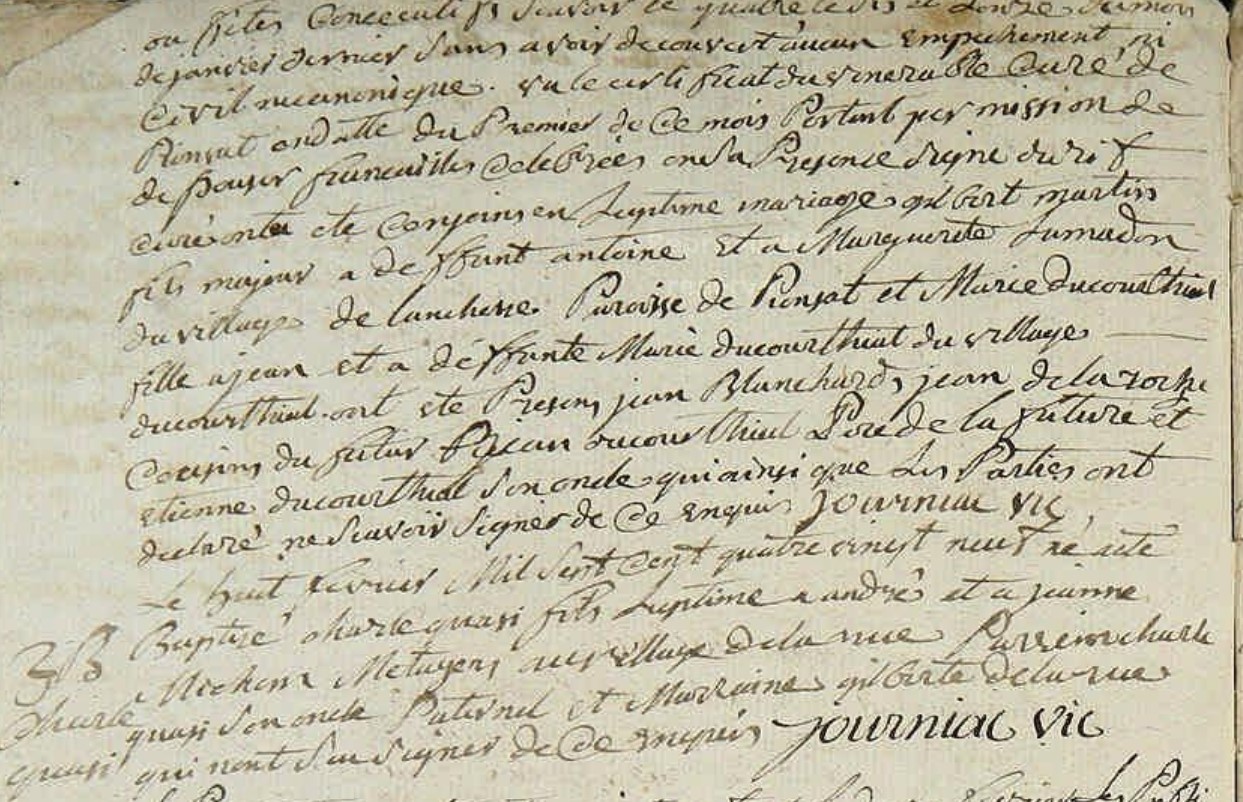 ou fetes consecutifs scavoir le quatre le six et onze du mois
de janvier dernier sans avoir decouvert aucun empechement, ni
civil ni canonique. vu le certificat du venerable Curé de
Pionsat en datte du Premier de ce mois Portant permission de
de fiancailles celebrées en sa Presence signé
curé ont ete conjoins en Legitime mariage gilbert martin
fils majeur a deffunt antoine et a Marguerite Lamadon
du village de Paroisse de Pionsat et Marie ducourthial
fille a jean et a deffunte Marie ducourthial du village
ducourthial. ont ete Presens jean Blanchard, jean delaroche
cousins du futur jean ducourthial Pere de la future et
etienne ducourthial son oncle qui ainsi que Les Parties ont
declaré ne scavoir signer de ce enquis Journiac vic
Le huit fevrier Mil sept cent quatre vingt neuf né a eté
Baptisé charle quasi fils Legitime a andré et a jeanne
Michon Metayers au village de la rue Parrein charle
quasi son oncle Paternel et Marraine gilberte delarue
qui nont scu signer de ce enquis Journiac Vic
3 B
Charle
quasi